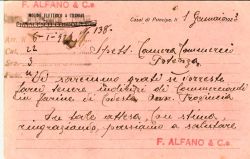 F. ALFANO & C.°
MOLINI ELETTRICI A CILINDRI
Casal di Principe, 1 Gennaio
6-1-32 138
Cat. 22 Spett. Camera Commercio
Sez. 3 Potenza
Vi saremmo grati se vorreste
farci tenere indirizzi di Commercianti
in farine di Codesta Provincia
In tale attesa, con stima,
ringraziamo, passiamo a salutare
F. ALFANO & C.°